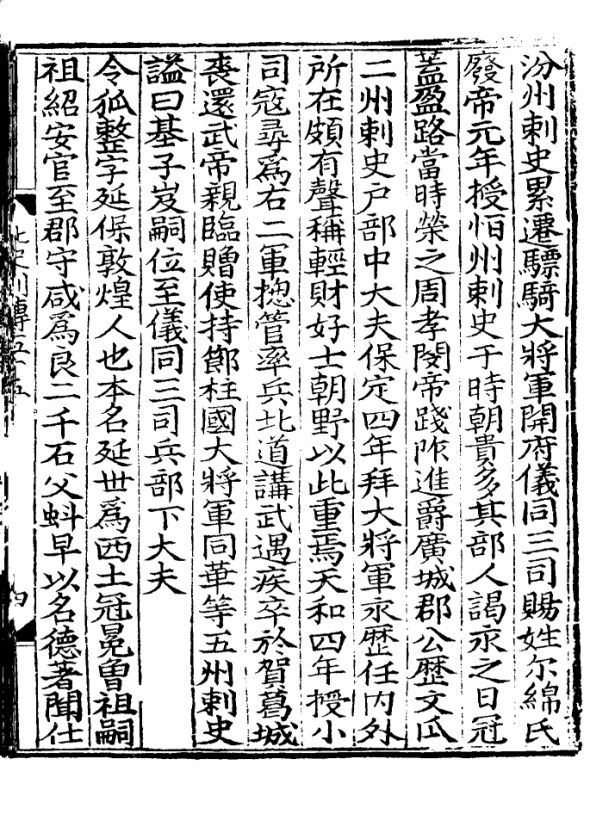 汾州剌史累遷驃騎大將軍開府儀同三司賜姓尔綿氏
廢帝元年授恒州剌史于時朝貴多其部人謁永之日冠
蓋盈路當時榮之周孝閔帝踐阼進爵廣城郡公歷文瓜
二州剌史戸部中大夫保定四年拜大將軍永歷任内外
所在頗有聲稱輕財好士朝野以此重焉天和四年授小
司寇尋爲右二軍揔管率兵北道講武遇疾卒於賀葛城
喪還武帝親臨贈使持節柱國大將軍同華等五州剌史
謚曰基子岌嗣位至儀同三司兵部下大夫
令狐整字延保敦煌人也本名延世爲西土冠冕曽祖嗣
祖紹安官至郡守咸爲良二千石父虯早以名德著聞仕
北史列傳五十五
四